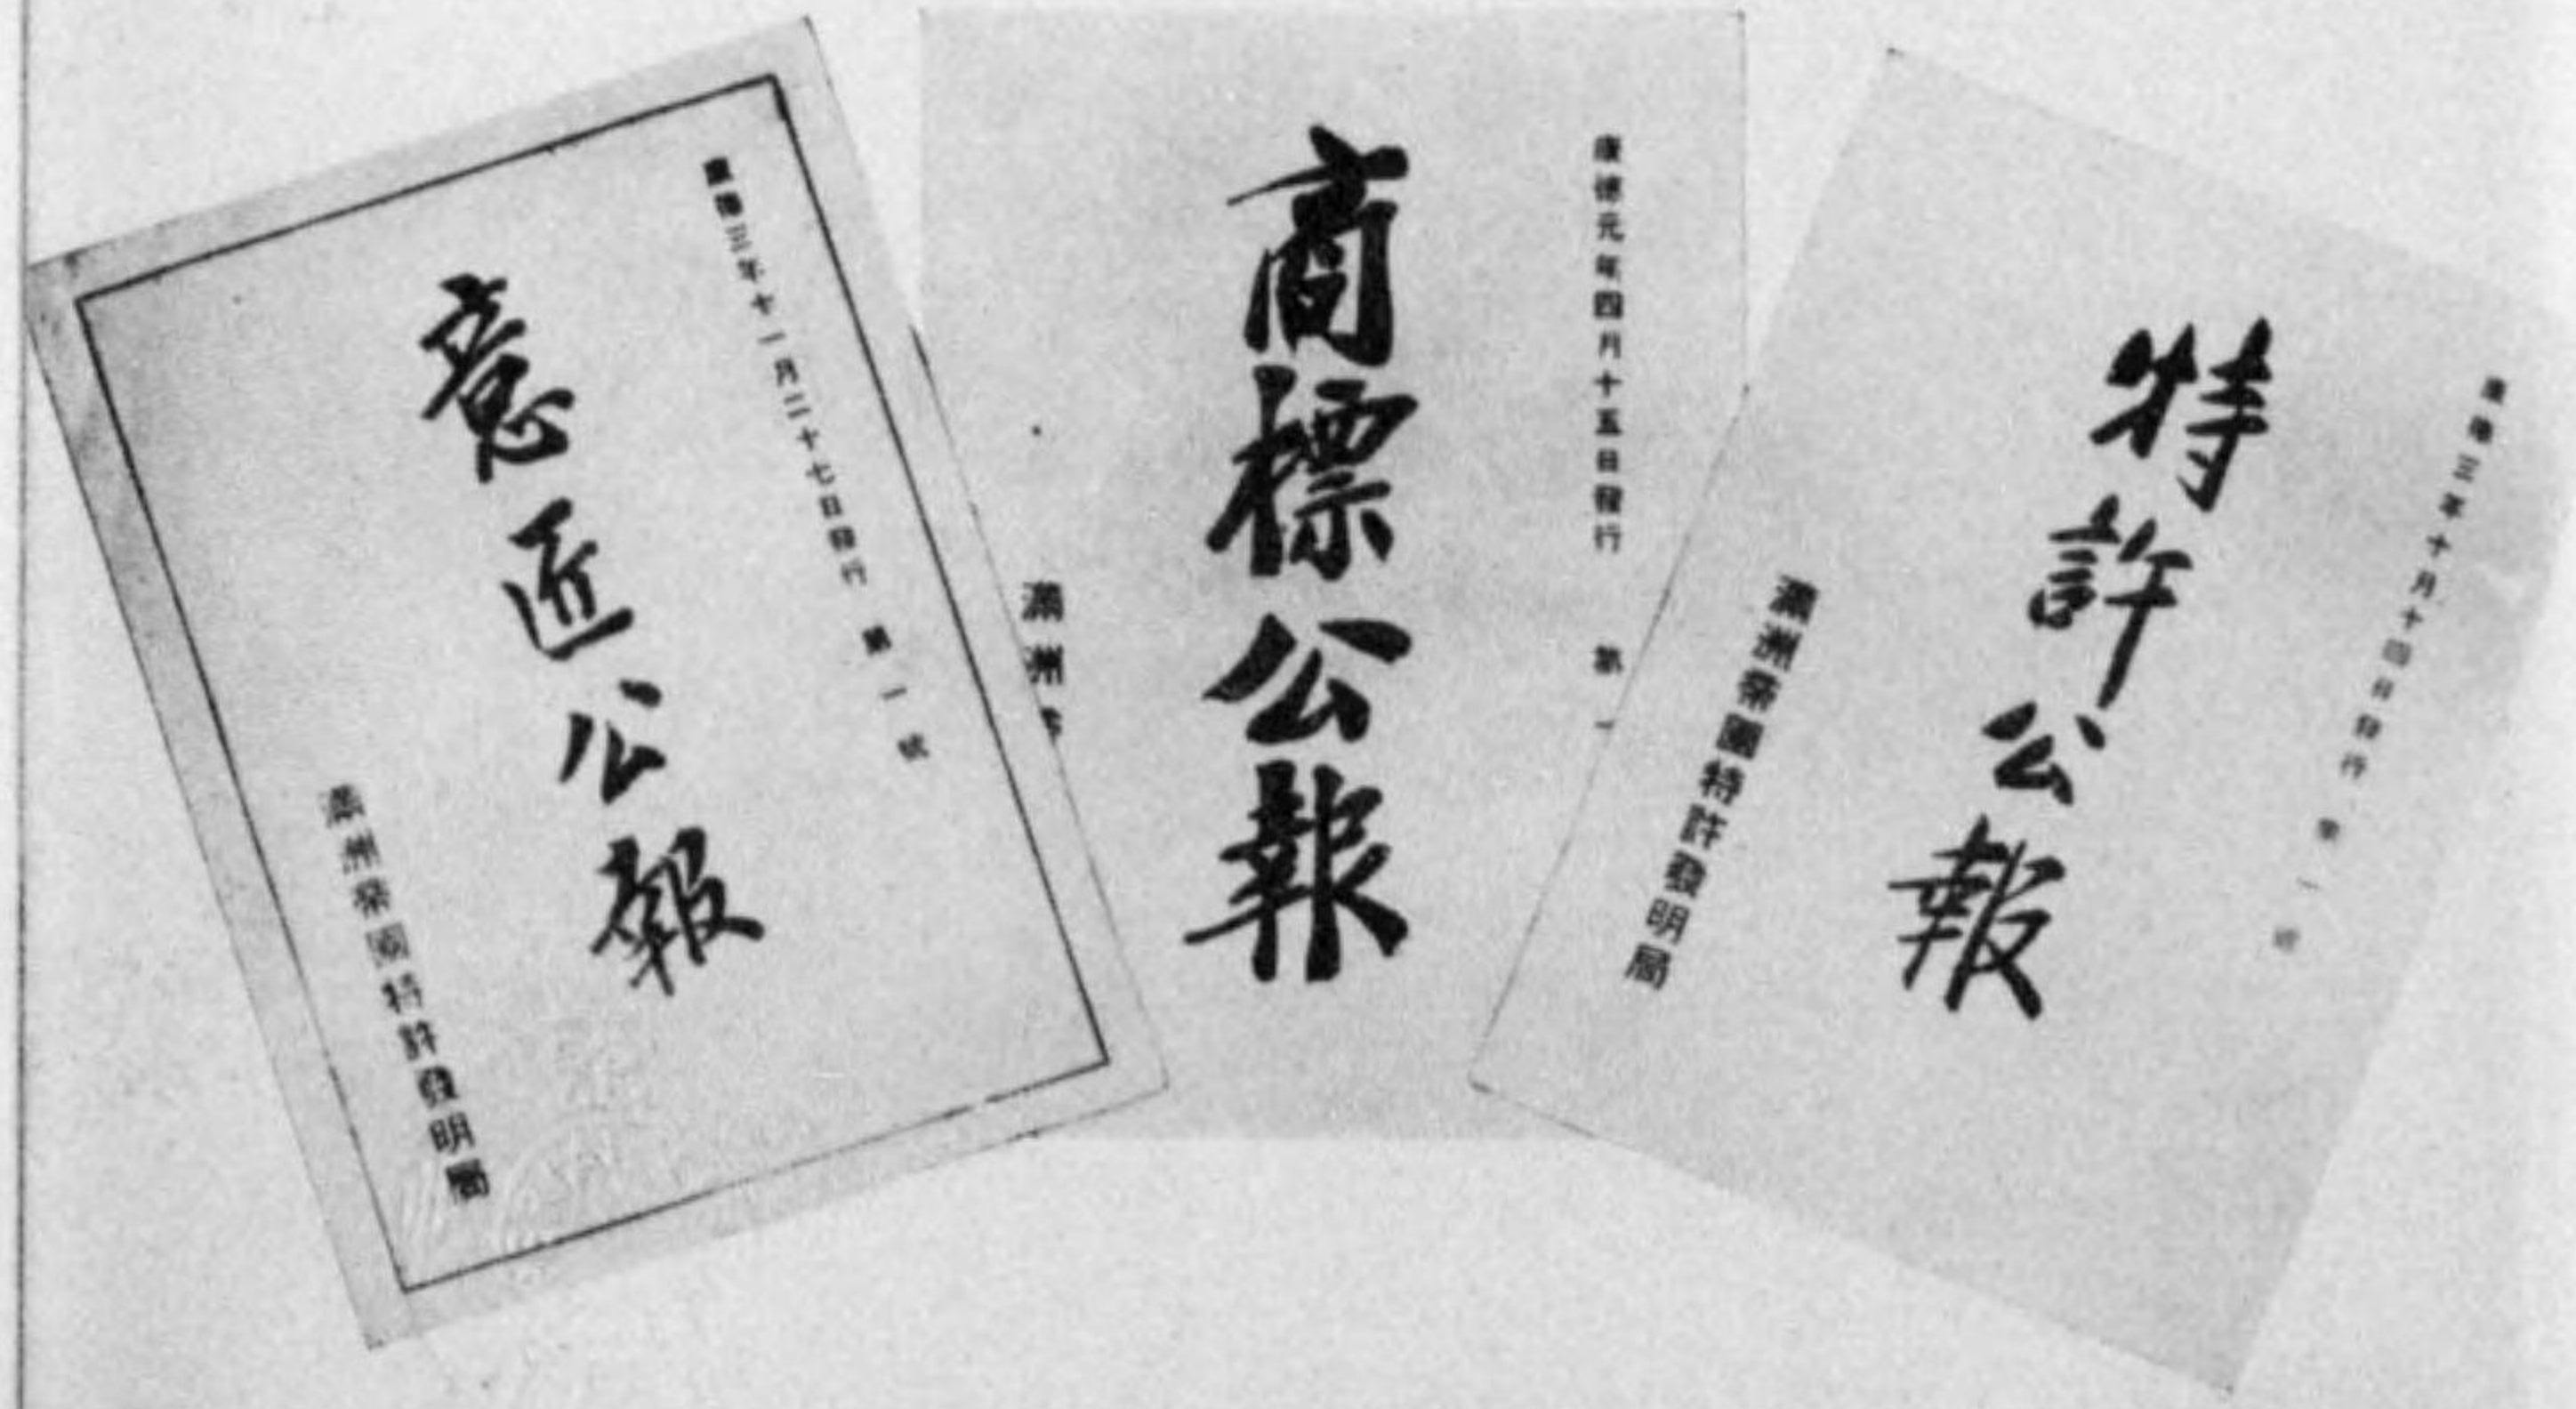 康德三年十月十四日發行 第一號
特許公報
滿洲帝國特許發明局
康德元年四月十五日發行 第一
商標公報
滿洲帝
康德三年十一月二十七日發行 第一號
意匠公報
滿洲帝國特許發明局